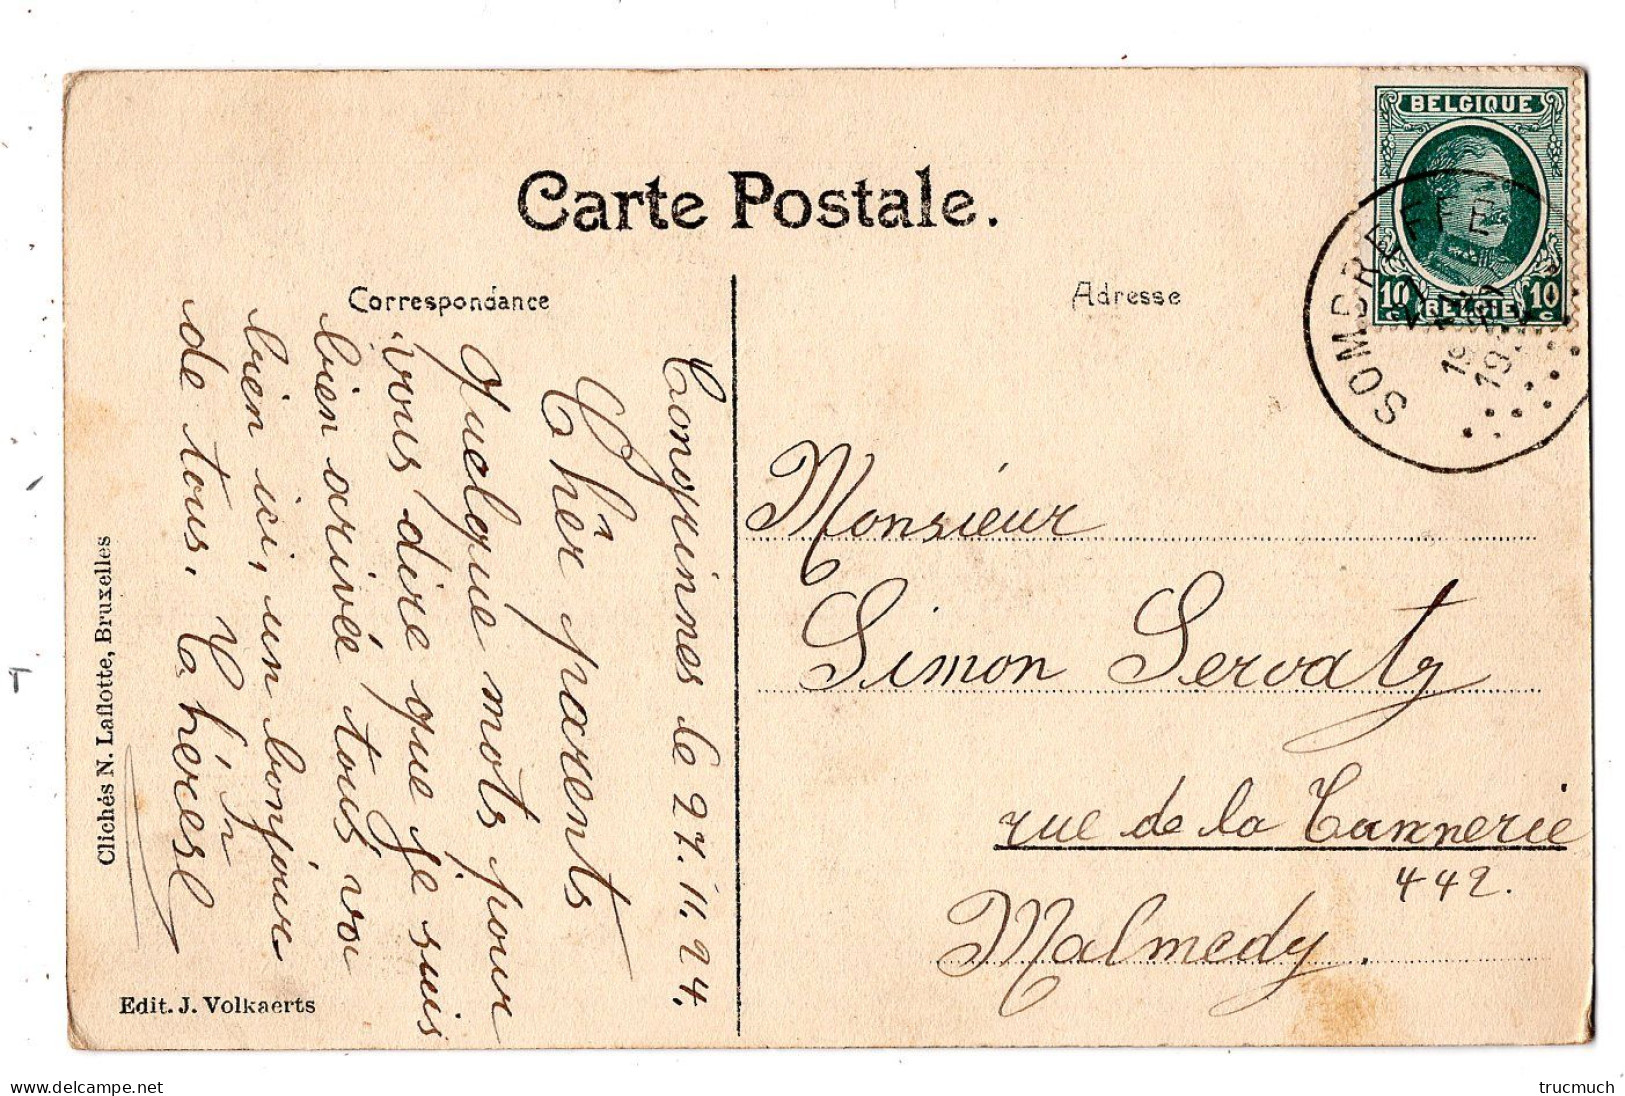 Carte Postale.
Correspondance
Adresse
BELGIQUE
10 c
BELGIE
10 c
SOMBREFFE
Congrinnes le 27.11.24.
Chèr parents
Quelque mots pour
vous dire que je suis
bien arivée tous va
bien ici, un bonjour
de tous.
Thérese
Monsieur
Simon Servaty
rue de la Tannerie
442.
Malmedy.
Clichés N. Laflotte, Bruxelles
Edit. J. Volkaerts
www.delcampe.net
trucmuch